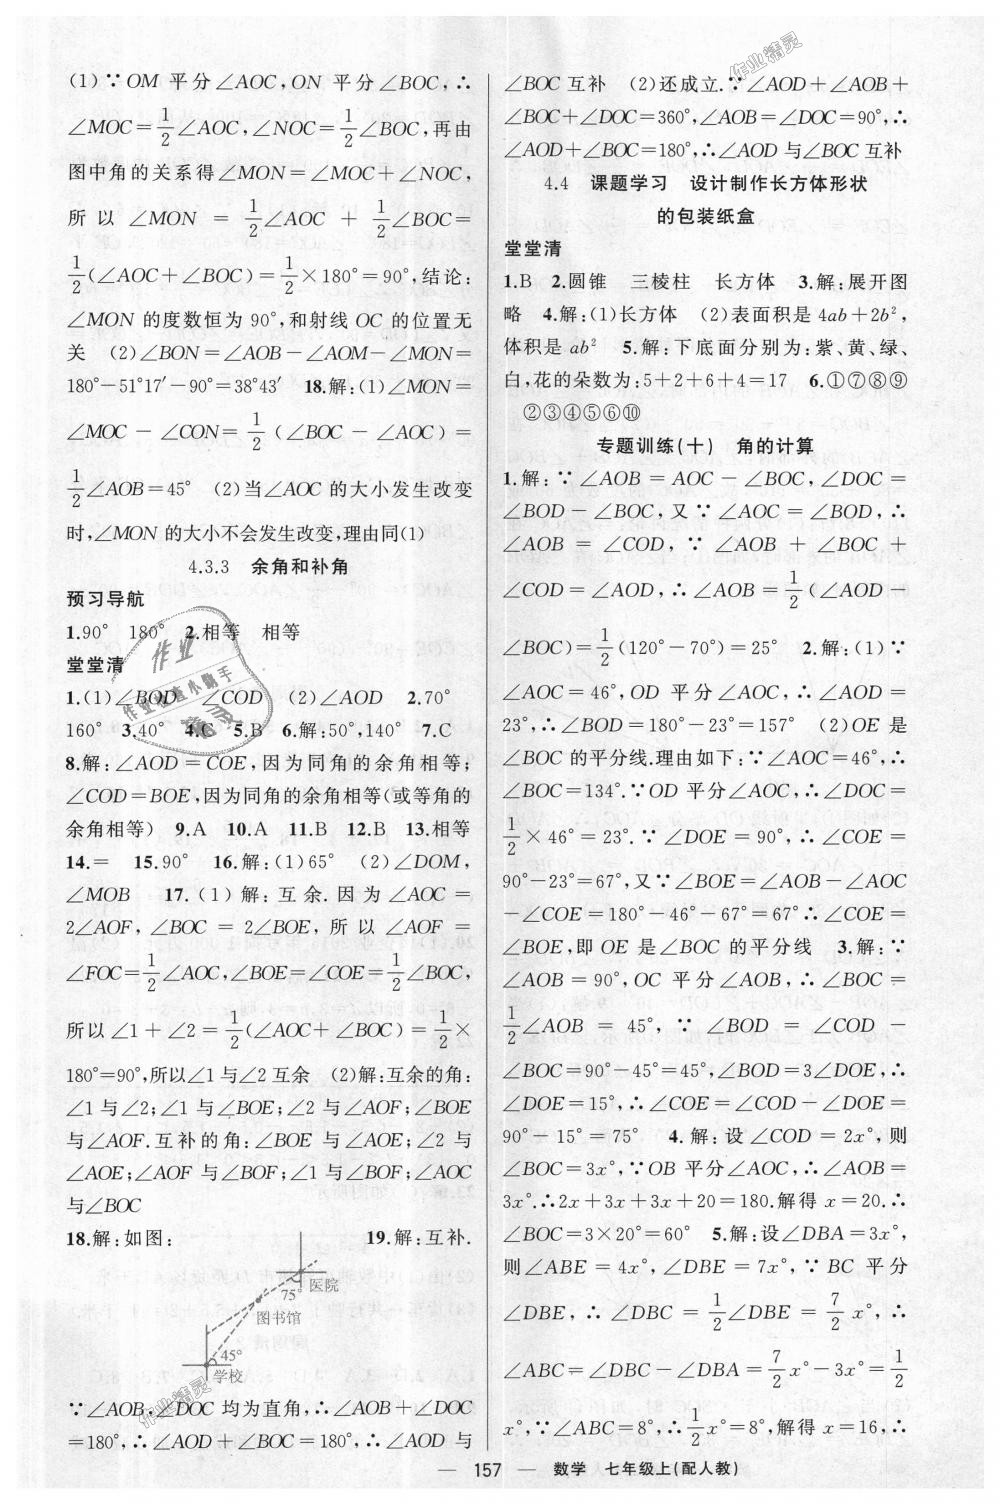 (1)∵OM 平分∠AOC,ON 平分∠BOC,∴
∠MOC=1/2∠AOC,∠NOC=1/2∠BOC,再由
图中角的关系得∠MON=∠MOC+∠NOC,
所以∠MON=1/2∠AOC+1/2∠BOC=
1/2(∠AOC+∠BOC)=1/2×180°=90°,结论:
∠MON 的度数恒为 90°,和射线 OC 的位置无
关 (2)∠BON=∠AOB-∠AOM-∠MON=
180°-51°17′-90°=38°43′ 18.解:(1)∠MON=
∠MOC-∠CON=1/2(∠BOC-∠AOC)=
1/2∠AOB=45° (2)当∠AOC 的大小发生改变
时,∠MON 的大小不会发生改变,理由同(1)
4.3.3 余角和补角
预习导航
1.90° 180° 2.相等 相等
堂堂清
1.(1)∠BOD ∠COD (2)∠AOD 2.70°
160° 3.40° 4.C 5.B 6.解:50°,140° 7.C
8.解:∠AOD=COE,因为同角的余角相等;
∠COD=BOE,因为同角的余角相等(或等角的
余角相等) 9.A 10.A 11.B 12.B 13.相等
14.= 15.90° 16.解:(1)65° (2)∠DOM,
∠MOB 17.(1)解:互余.因为∠AOC=
2∠AOF,∠BOC=2∠BOE,所以∠AOF=
∠FOC=1/2∠AOC,∠BOE=∠COE=1/2∠BOC,
所以∠1+∠2=1/2(∠AOC+∠BOC)=1/2×
180°=90°,所以∠1与∠2互余 (2)解:互余的角:
∠1与∠2;∠1与∠BOE;∠2与∠AOF;∠BOE
与∠AOF.互补的角:∠BOE与∠AOE;∠2与
∠AOE;∠AOF与∠BOF;∠1与∠BOF;∠AOC
与∠BOC
18.解:如图: 19.解:互补.
75°
医院
图书馆
45°
学校
∵∠AOB,∠DOC 均为直角,∴∠AOB+∠DOC
=180°,∴∠AOD+∠BOC=180°,∴∠AOD 与
∠BOC 互补 (2)还成立.∵∠AOD+∠AOB+
∠BOC+∠DOC=360°,∠AOB=∠DOC=90°,∴
∠AOD+∠BOC=180°,∴∠AOD 与∠BOC 互补
4.4 课题学习 设计制作长方体形状
的包装纸盒
堂堂清
1.B 2.圆锥 三棱柱 长方体 3.解:展开图
略 4.解:(1)长方体 (2)表面积是 4ab+2b²,
体积是 ab² 5.解:下底面分别为:紫、黄、绿、
白,花的朵数为:5+2+6+4=17 6.①⑦⑧⑨
②③④⑤⑥⑩
专题训练(十) 角的计算
1.解:∵∠AOB=AOC-∠BOC,∠DOC=
∠BOD-∠BOC,又∵∠AOC=∠BOD,∴
∠AOB=∠COD,∵∠AOB+∠BOC+
∠COD=∠AOD,∴∠AOB=1/2(∠AOD-
∠BOC)=1/2(120°-70°)=25° 2.解:(1)∵
∠AOC=46°,OD 平分∠AOC,∴∠AOD=
23°,∴∠BOD=180°-23°=157° (2)OE 是
∠BOC 的平分线.理由如下:∵∠AOC=46°,∴
∠BOC=134°.∵OD 平分∠AOC,∴∠DOC=
1/2×46°=23°.∵∠DOE=90°,∴∠COE=
90°-23°=67°,又∵∠BOE=∠AOB-∠AOC
-∠COE=180°-46°-67°=67°∴∠COE=
∠BOE,即 OE 是∠BOC 的平分线 3.解:∵
∠AOB=90°,OC 平分∠AOB,∴∠BOC=
1/2∠AOB=45°,∵∠BOD=∠COD-
∠BOC=90°-45°=45°,∠BOD=3∠DOE,∴
∠DOE=15°,∴∠COE=∠COD-∠DOE=
90°-15°=75° 4.解:设∠COD=2x°,则
∠BOC=3x°,∵OB 平分∠AOC,∴∠AOB=
3x°.∴2x+3x+3x+20=180.解得 x=20.∴
∠BOC=3×20°=60° 5.解:设∠DBA=3x°,
则∠ABE=4x°,∠DBE=7x°,∵BC 平分
∠DBE,∴∠DBC=1/2∠DBE=7/2x°,∴
∠ABC=∠DBC-∠DBA=7/2x°-3x°=1/2
x°,∵∠ABC=8°,∴1/2x°=8°,解得 x=16,∴
— 157 — 数学 七年级上(配人教)
作业精灵
作业精灵